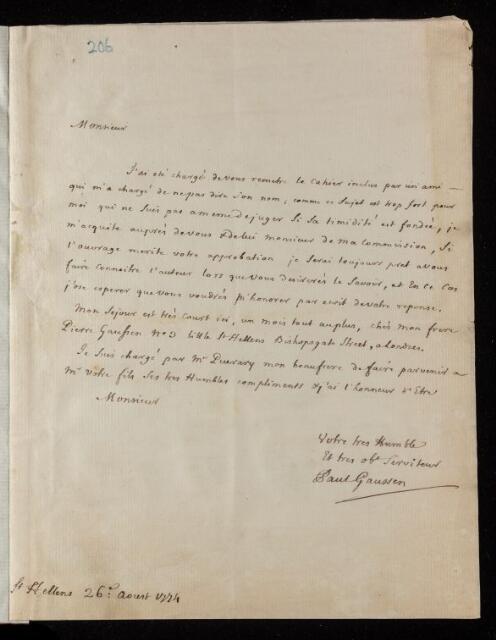 206
Monsieur
J'ai eté chargé de vous remetre le Cahier inclus par un ami —
qui m'a chargé de ne pas dire son nom, comme ce Sujet est trop fort pour
moi qui ne Suis pas a meme de juger Si Sa timidité est fondée, je
m'acquite auprès de vous & de lui monsieur de ma Commission, Si
l'ouvrage merite votre approbation je Serai toujours pret a vous
faire Connoitre l'auteur lors que vous desirerés le Savoir, et En Ce Cas
j'ose esperer que vous voudrés m'honorer par ecrit de votre reponse.
Mon Sejour est très Court ici, un mois tout au plus, chés mon frere
Pierre Gaussen No 3 little St Hellens Bishopsgate Street, a Londres.
Je Suis chargé par Mr mon beaufrere de faire parvenir a
Mr votre fils Ses tres Humbles compliments & j'ai l'honneur d'Etre
Monsieur
Votre tres Humble
Et tres obt Serviteur
Paul Gaussen
St Hellens 26e Aoust 1774